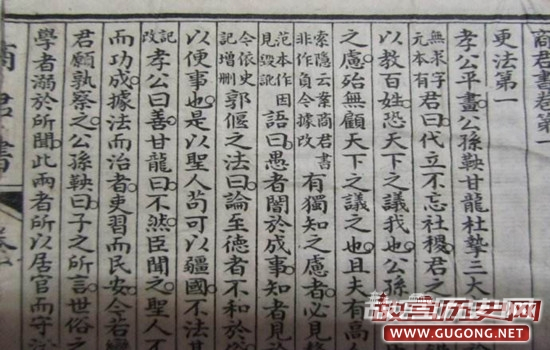 商君書卷第一
更法第一
孝公平畫公孫鞅甘龍杜摯三大
無求字
元本有
君曰代立不忘社稷君之
以教百姓恐天下之議我也公孫
之慮殆無顧天下之議之也且夫有高
索隱云案商君書
非作負今據改
有獨知之慮者必見
范本作因
語曰愚者闇於成事知者見
令依史
記增刪
郭偃之法曰論至德者不和於
以便事也是以聖人苟可以疆國不法其
記
改
孝公曰善甘龍曰不然臣聞之聖人不
而功成據法而治者吏習而民安今若
君願孰察之公孫鞅曰子之所言世俗之
學者溺於所聞此兩者所以居官而守法
商君書
故宫历史网
www.gugong.net